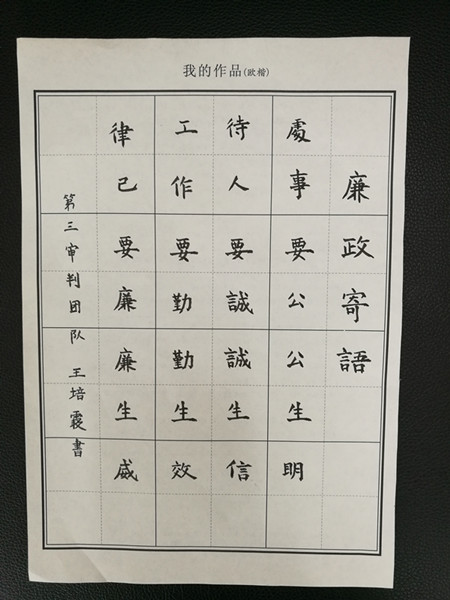 我的作品(欧楷)
廉政寄語
處事要公公生明
待人要誠誠生信
工作要勤勤生效
律己要廉廉生威
第三审判团队王培霞書